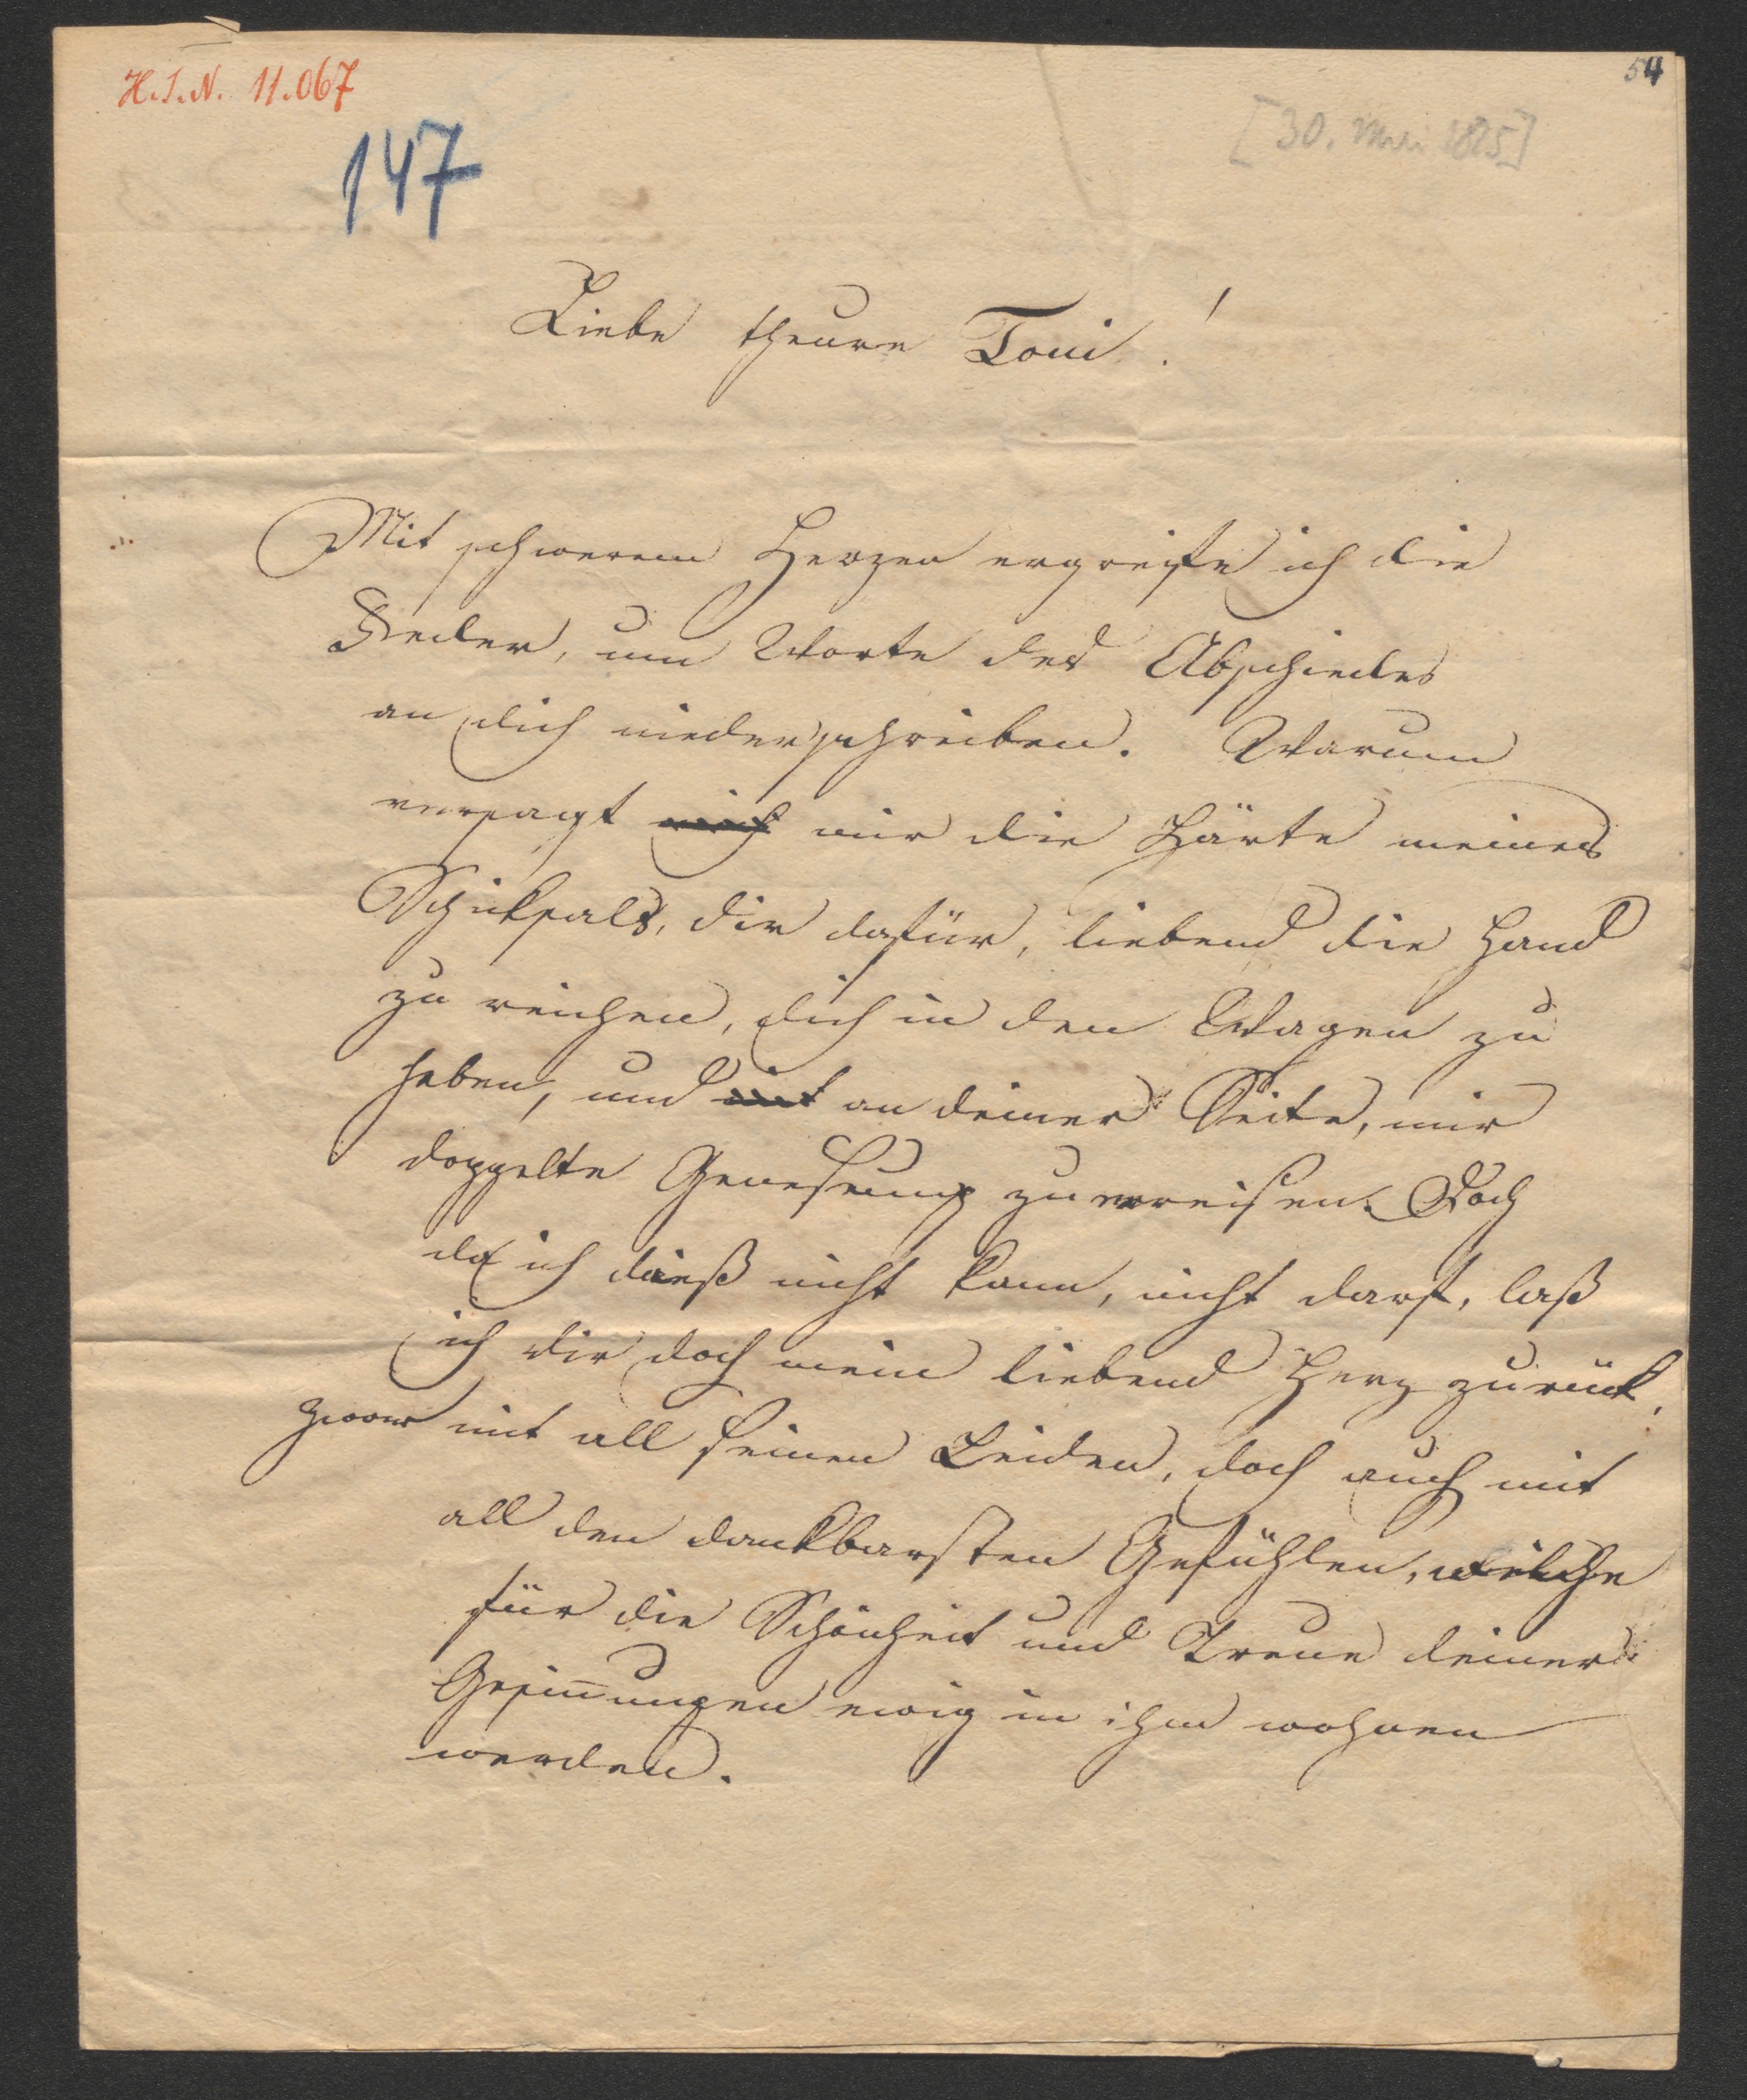 H.I.N. 11.067
54
[30. Mai 1825]
147
Liebe theure Toni!
Mit schwerem Herzen ergreife ich die
Feder, um Worte des Abschiedes
an dich niederschreiben. Warum
versagt mich mir die Härte meines
Schicksals, dir dafür, liebend die Hand
zu reichen, dich in den Wagen zu
heben, und mit an deiner Seite, mir
doppelte Genesung zu erreisen. Doch
da ich dieß nicht kann, nicht darf, laß
ich dir doch mein liebend Herz zurück,
zwar mit all seinen Leiden, doch auch mit
all den dankbarsten Gefühlen, welche
für die Schönheit und Treue deiner
Gesinnungen ewig in ihm wohnen
werden.